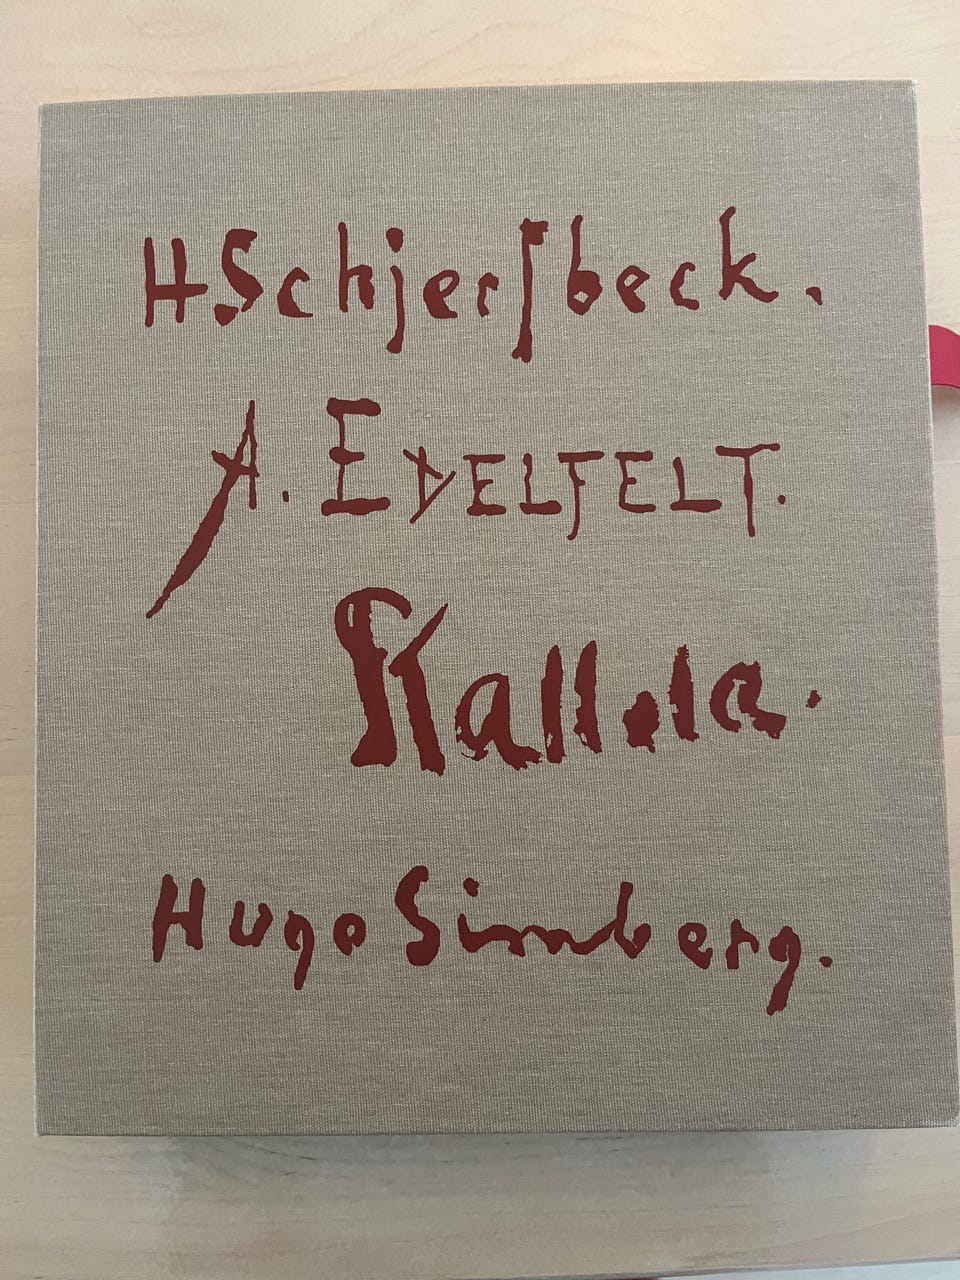 HSchjerfbeck.
A. EDELFELT.
Kallela.
Hugo Simberg.